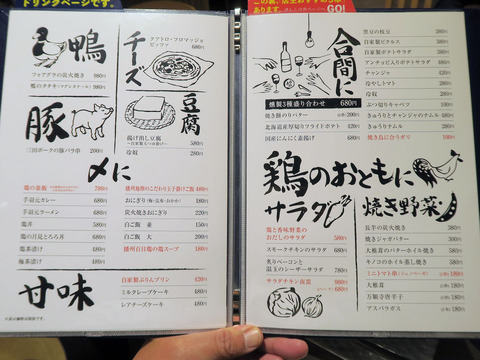 ドリンクページです。
鴨
フォアグラの炭火焼き 980円
鴨のタタキ(マツアンタケール) 980円
チーズ
クアトロ・フロマッジョ
ピッツァ 680円
豚
三田ポークの豚バラ串 280円
豆腐
揚げ出し豆腐 580円
冷奴 280円
〆に
鶏の釜飯 780円
手羽元カレー 680円
手羽元ラーメン 680円
鶏丼 580円
鶏の月見とろろ丼 580円
鶏茶漬け 480円
梅茶漬け 480円
播州地鶏のこだわり玉子掛けご飯 480円
おにぎり
炭火焼きおにぎり 220円
白ご飯 並 150円
白ご飯 大 200円
播州百日鶏の鶏スープ 180円
甘味
自家製ぷりんプリン 420円
ミルクレープケーキ 480円
レアチーズケーキ 480円
GO!
合間に
黒豆の枝豆 380円
自家製ピクルス 380円
自家製ポテトサラダ 380円
アンチョビ入りポテトサラダ 480円
チャンジャ 420円
冷やしトマト 280円
冷奴 280円
ぶつ切りキャベツ 180円
きゅうりとチャンジャのナムル 380円
きゅうりナムル 280円
焼き鳥に合うガリ 100円
燻製3種盛り合わせ 680円
焼き餅のりバター
北海道産厚切りフライドポテト 420円
国産にんにく素揚げ 380円
鶏のおともに
サラダ
鶏と香味野菜の
おだしのサラダ 580円
スモークチキンのサラダ 680円
炙りベーコンと
温玉のシーザーサラダ 680円
サラダチキン南蛮 980円
焼き野菜
長芋の炭火焼き 380円
焼きジャガバター 300円
大椎茸のバターホイル焼き 380円
キノコのホイル蒸し焼き 380円
ミニトマト串 180円
大椎茸 180円
万願寺唐辛子 180円
アスパラガス 180円